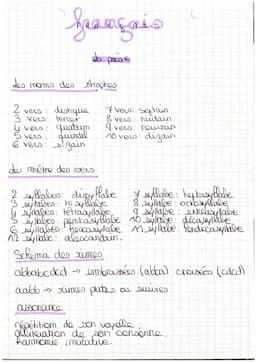 français
la poésie
Les noms des strophes
2 vers: distique 7 vers: septain
3 vers: tercet 8 vers: huitain
4 vers: quatrain 9 vers: neuvain
5 vers: quintil 10 vers: dizain
6 vers: sizain
Le mètre des vers
2 syllabes: dissyllabe 7 syllabe: heptasyllabe
3 syllabes: trisyllabe 8 syllabe: octosyllabe
4 syllabes: tétrasyllabe 9 syllabe: ennéasyllabe
5 syllabes: pentasyllabe 10 syllabe: décasyllabe
6 syllabes: hexasyllabe 11 syllabe: hendécasyllabe
12 syllabe: alexandrin.
Schéma des rimes
abbabcdcd → embrassées (abba) croisées (cdcd)
aabb → rimes plates ou suivies
assonance
répétition de son voyelle
allitération de son consonne.
harmonie imitative.